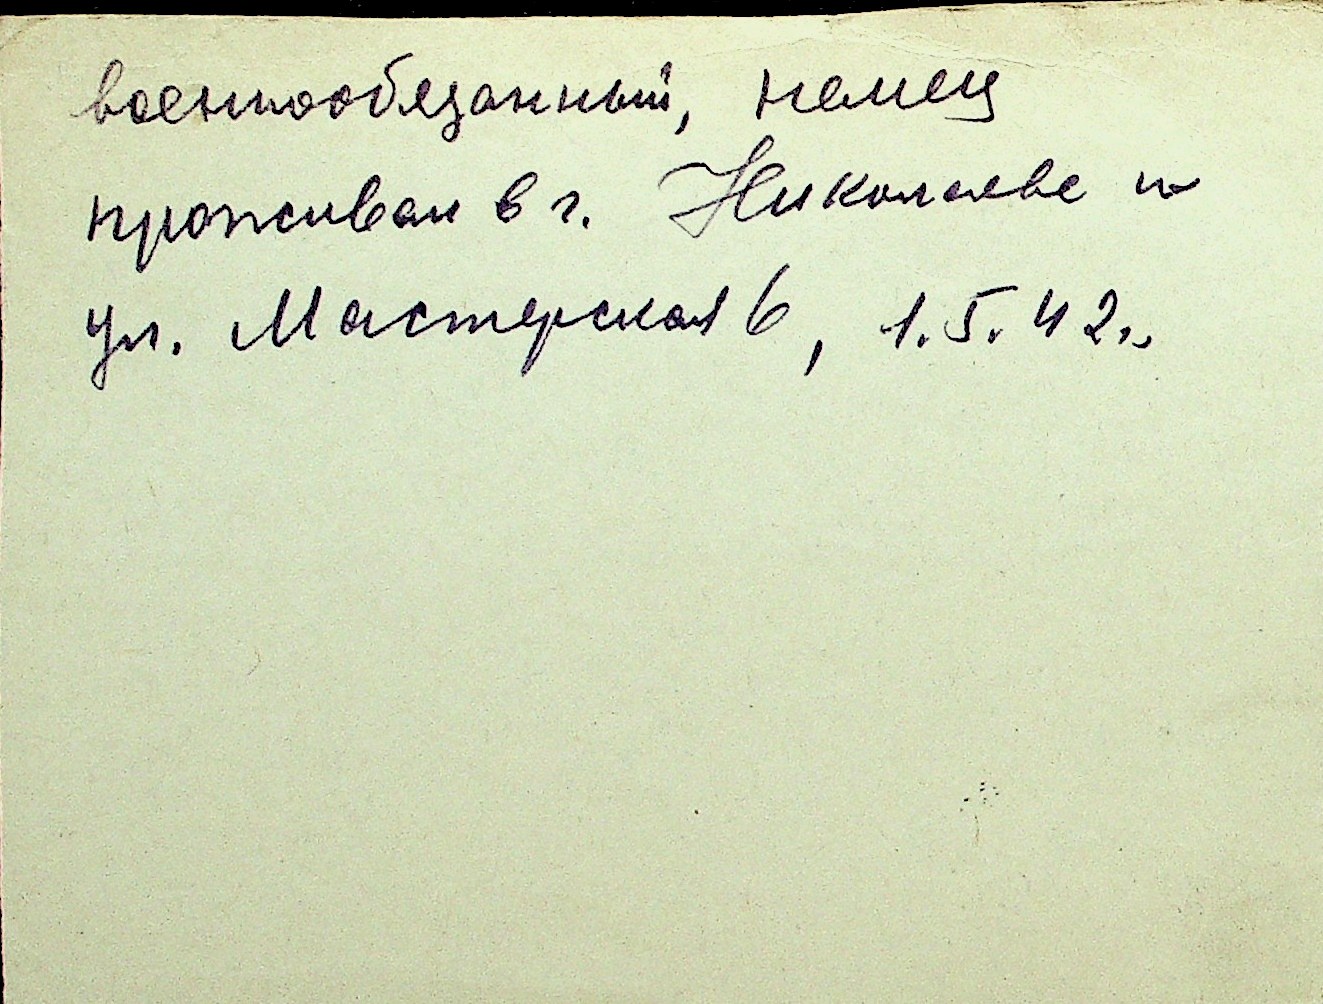 военнообязанный, немец
проживал в г. Николаеве по
ул. Мастерская 6, 1.5.42г.